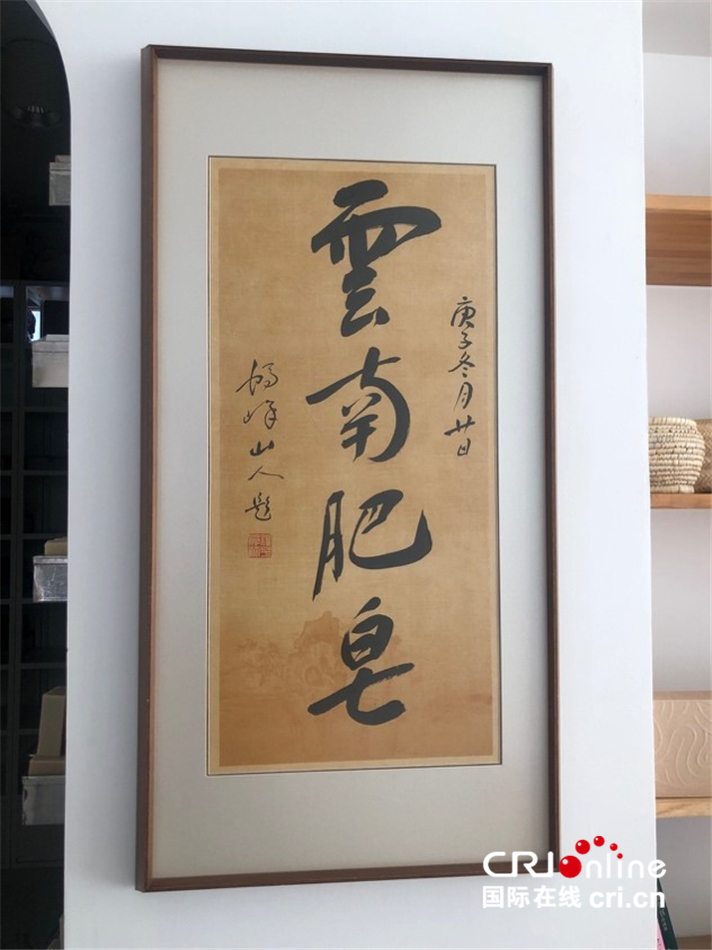 庚子冬月廿日
雲南肥皂
峰山人題
CRIonline
国际在线 cri.cn